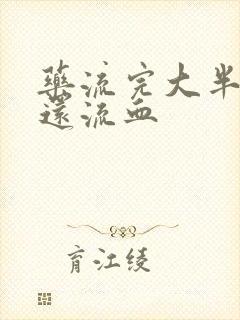 藥流完大半
還流血
育江綾